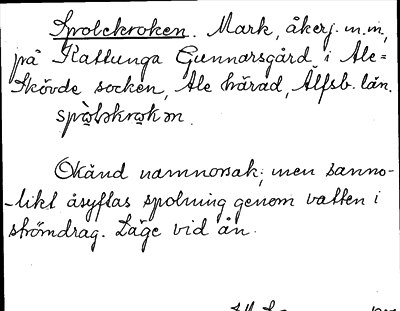 Spolekroken. Mark, åkerj. m.m.,
på Kattunga Gunnarsgård i Ale-
Skövde socken, Ale härad, Älfsb. län.
Okänd namnorsak; men sanno-
-likt åsyftas spolning genom vatten i
strömdrag. Läge vid ån.